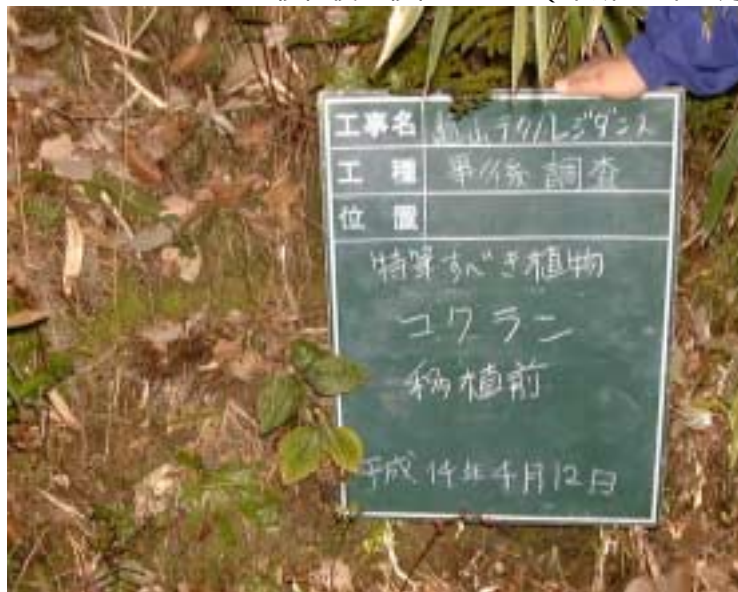 工事名 テクノレジデンス
工種 事後調査
位置
特筆すべき植物
コクラン
移植前
平成14年4月12日